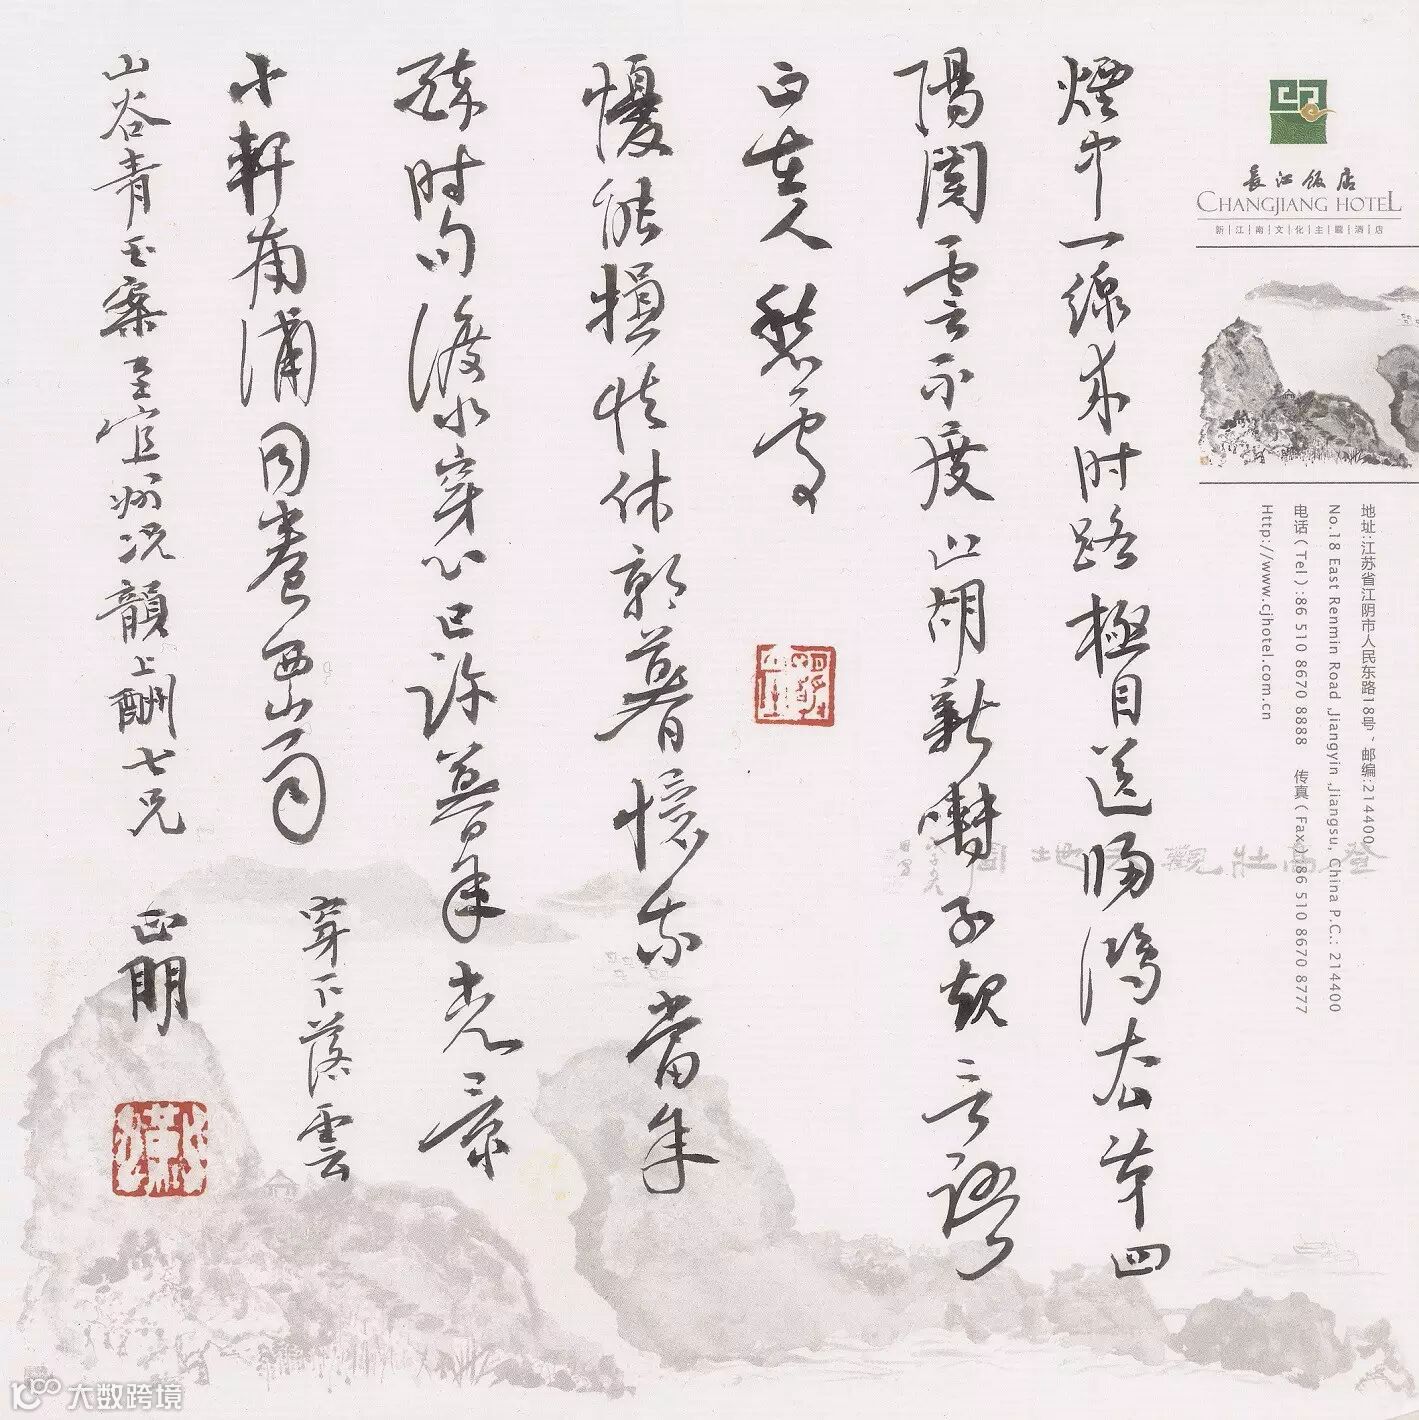 長江飯店
CHANGJIANG HOTEL
新江南文化主题酒店
地址:江苏省江阴市人民东路18号 邮编:214400
No.18 East Renmin Road ,Jiangyin ,Jiangsu, China P.C.: 214400
电话(Tel):86 510 8670 8888 传真(Fax):86 510 8670 8777
Http://www.cjhotel.com.cn
登高壯觀天地間
煙中一線來时路極目送歸鴻去第四
陽関雲不度山胡新囀子規言語
正在人愁處
懮能損性休朝暮憶我當年
醉时句渡水穿心已許暮年光景
小軒南浦同卷西山雨
穿下落雲
山谷青玉案至宜州次韻上酬七兄
正明
大数跨境